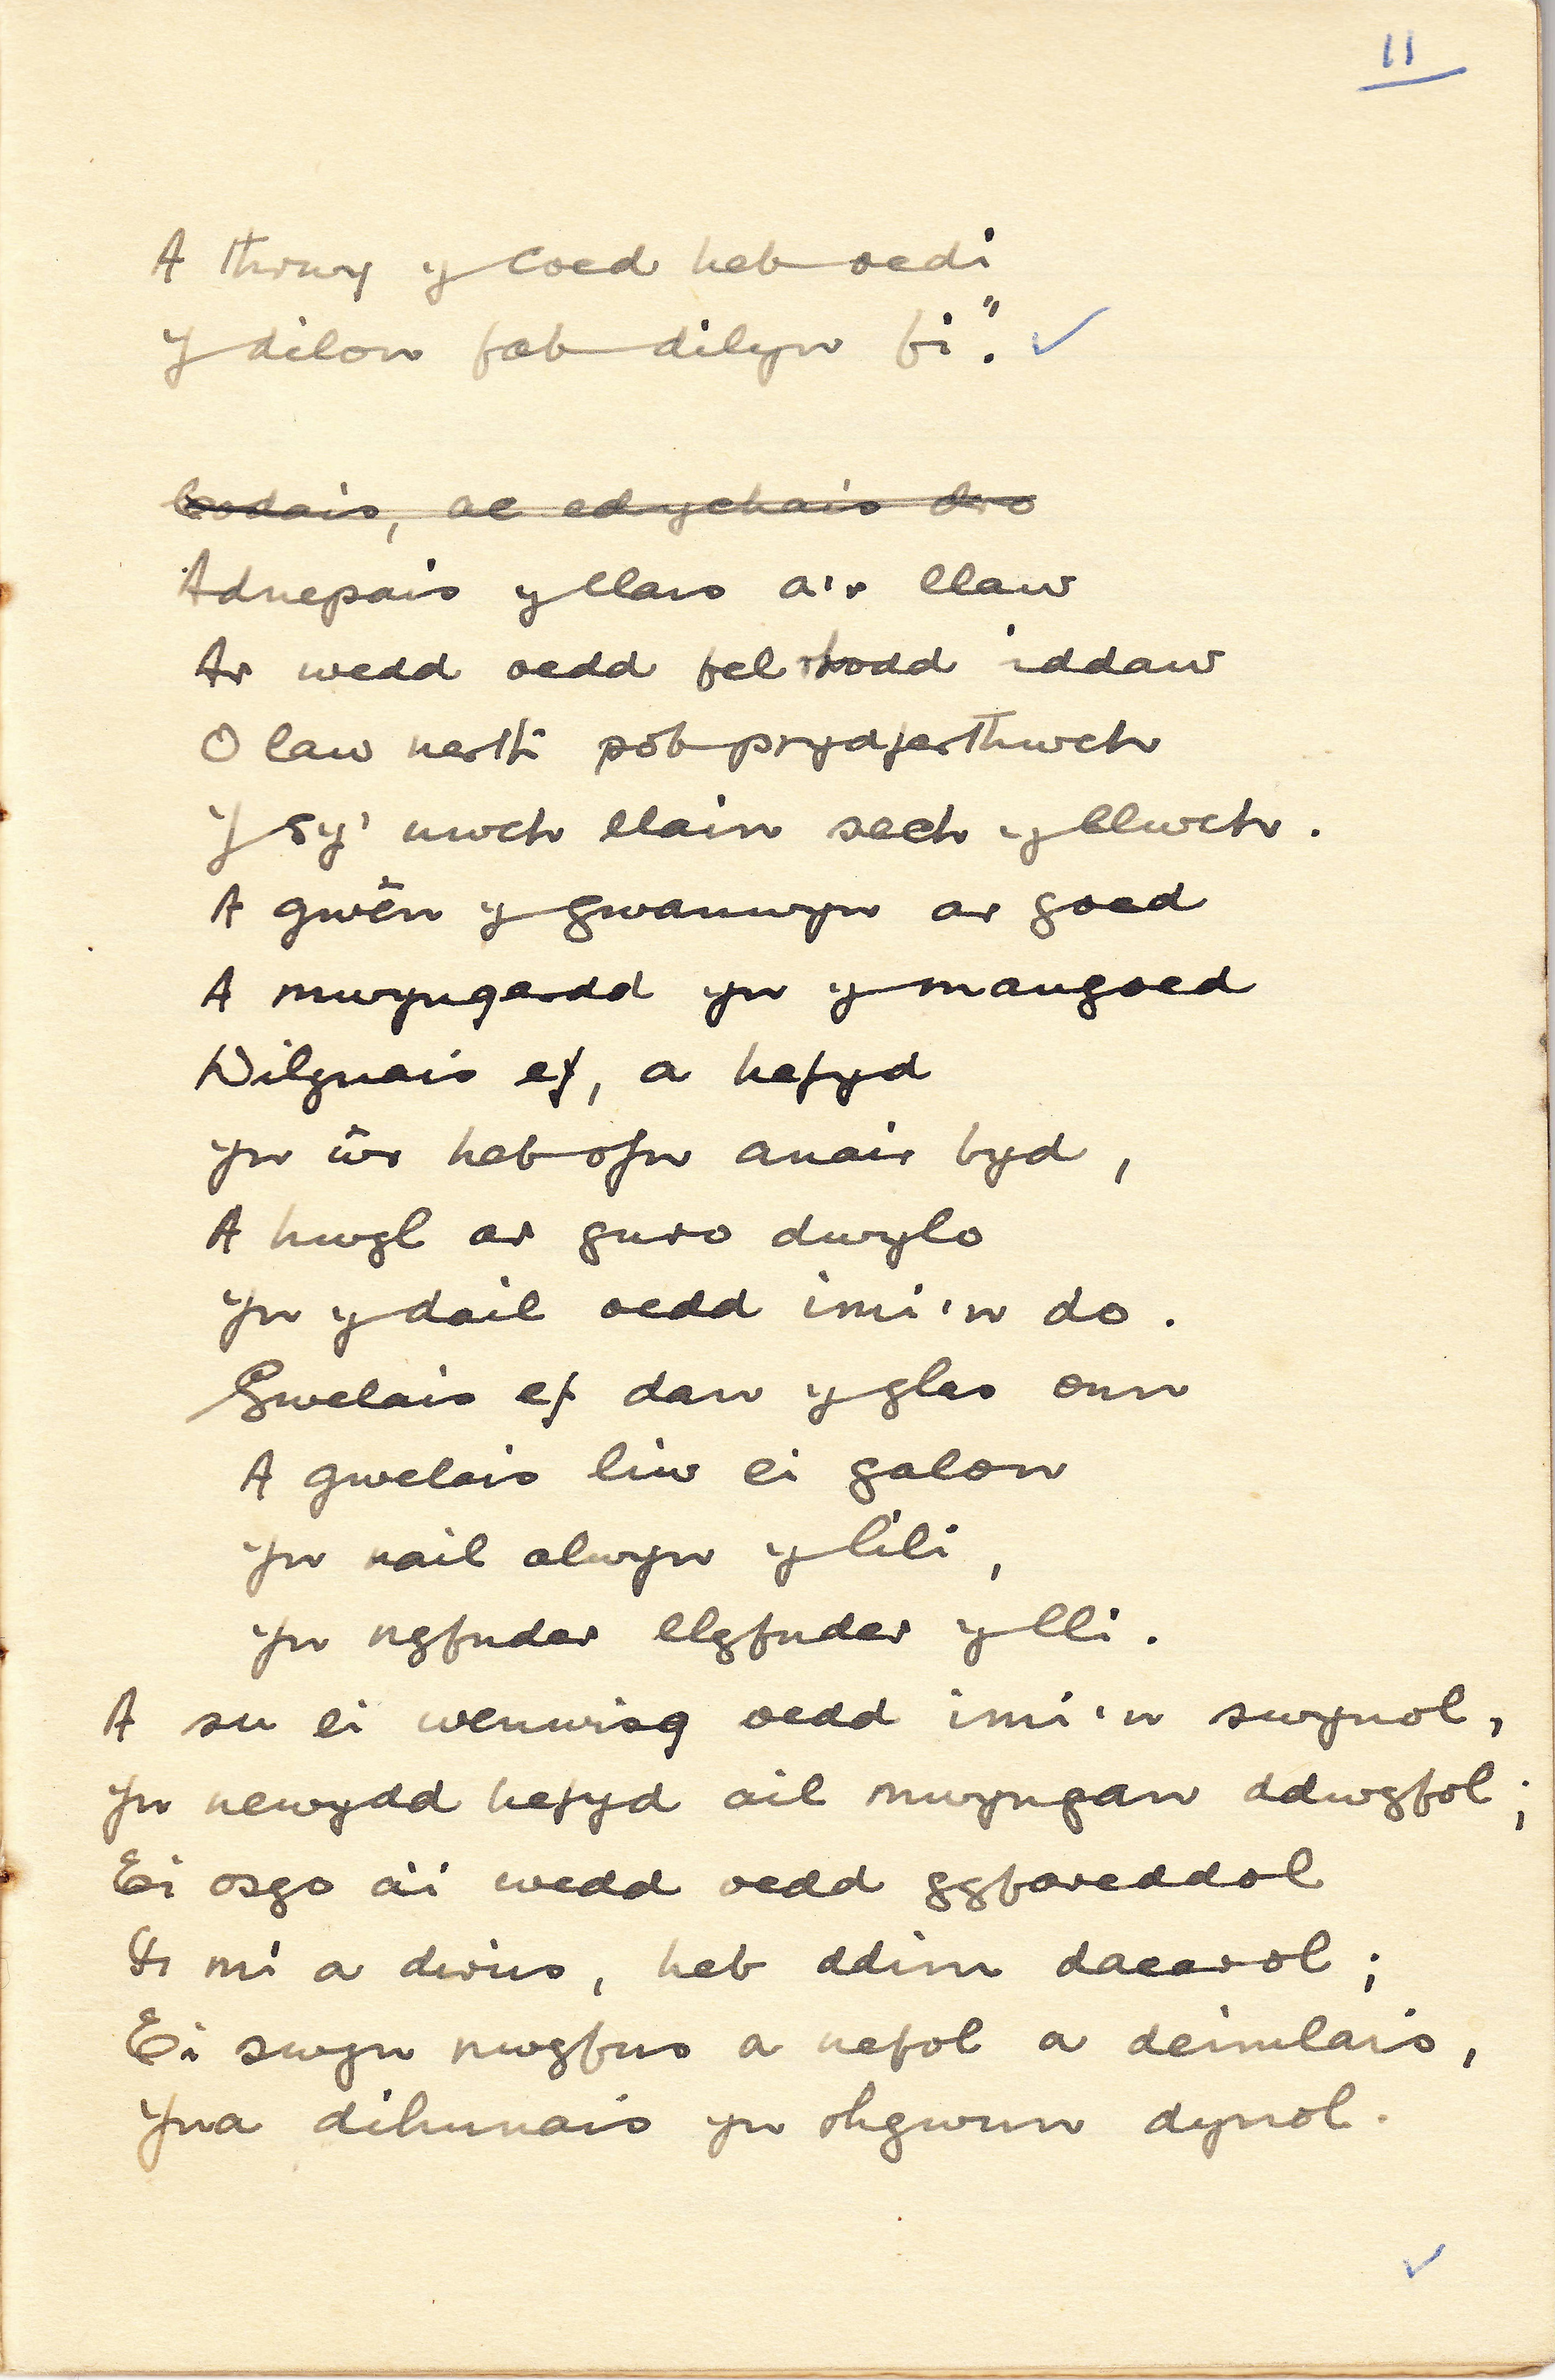 11
A thrwy y coed heb oedi
Y dilon fab dilyn fi."
Codais, ac edrychais dro
Adnepais y llais a'r llaw
Ar wedd oedd fel rhodd iddaw
O law nerth pob prydferthwch
Y sy' uwch llain sech y llwch.
A gwên y gwanwyn ar goed
A mwyngerdd yn y mangoed
Dilynais ef, a hefyd
Yn ŵr heb ofn anair byd,
A hwyl ar guro dwylo
Yn y dail oedd imi'n do.
Gwelais ef dan y glas onn
A gwelais liw ei galon
Yn nail alwyn y lili,
Yn nyfnder llyfnder y lli.
A su ei wenwisg oedd imi'n swynol,
Yn newydd hefyd ail mwyngan ddwyfol;
Ei osgo a'i wedd oedd gyfareddol
I mi a dirius, heb ddim daearol;
Ei swyn nwyfus a nefol a deimlais,
Yna dihunais yn rhywun dynol.